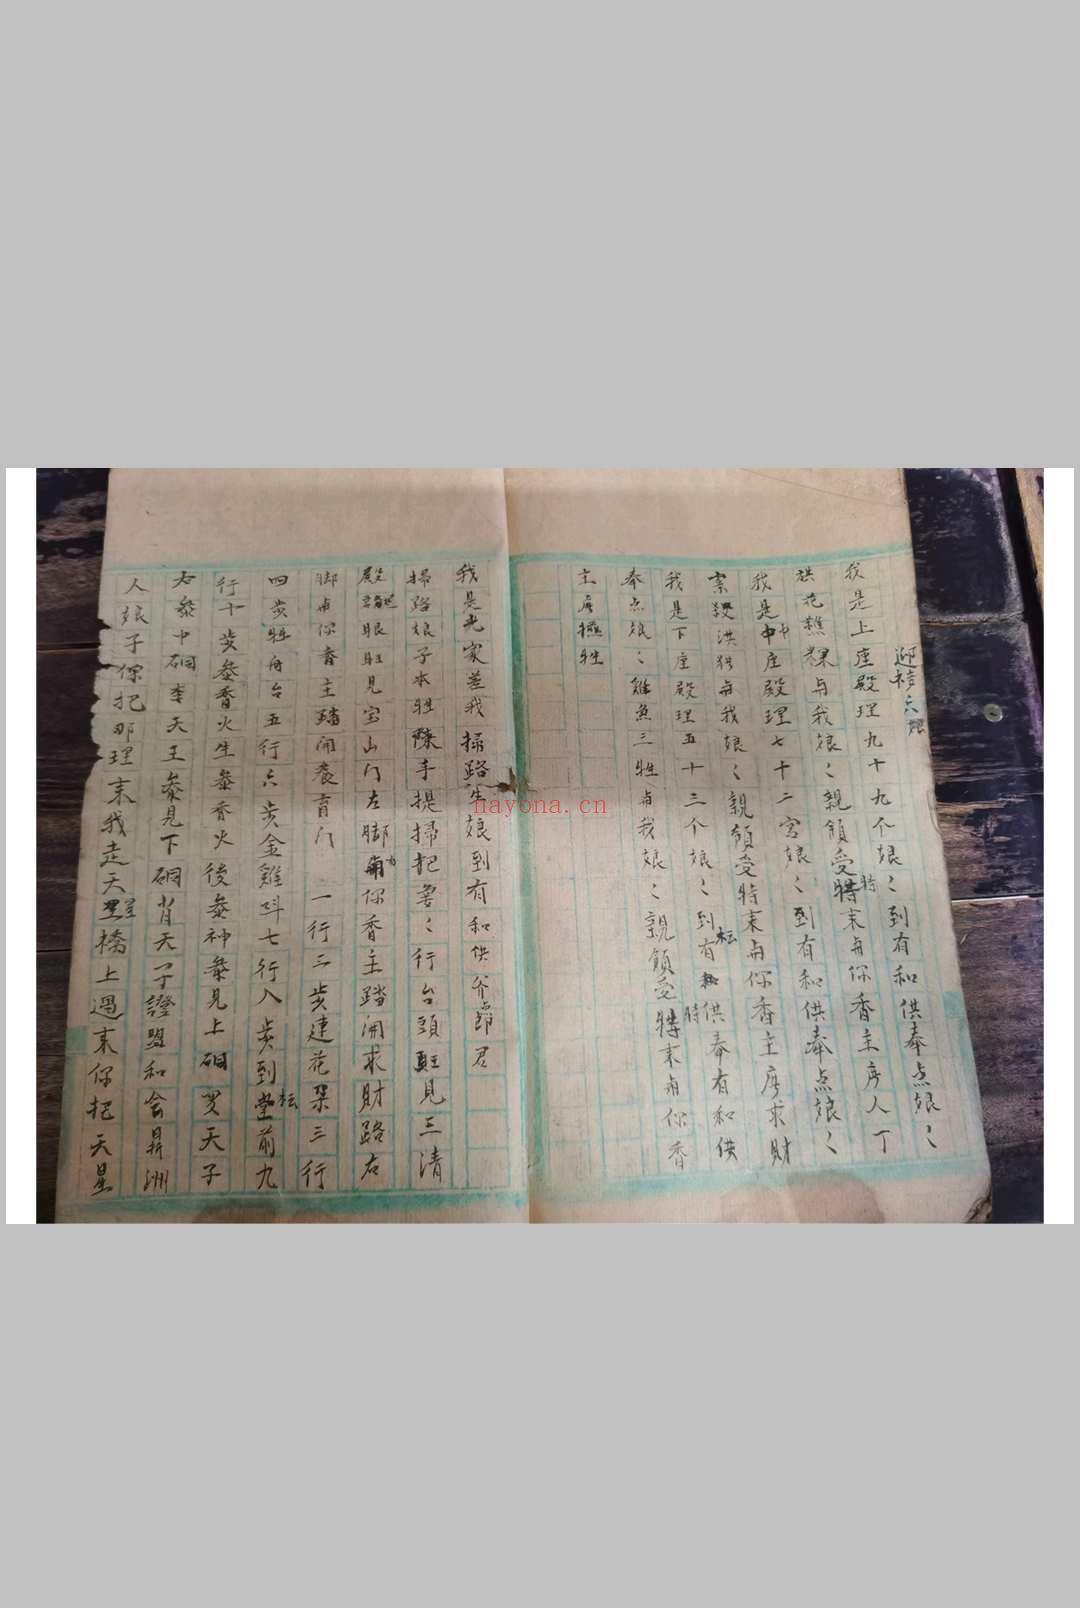 迎接六娘
我是上座殿理九十九个娘〻到有和供奉点娘〻
花蕉粿与我娘〻親領受特来与你香主房人丁
我是中座殿理七十二宮娘〻到有和供奉点娘〻
洪猪与我娘〻親領受特来与你香主房求財
我是下座殿理五十三个娘〻到有坛供奉有和供
奉点娘〻雞魚三牲与我娘〻親領受特来与你香
主房牲
我是光家差我掃路娘到有和供爷郎君
掃路娘子本姓陳手提掃把兽〻行台頭見三清
殿眼見宝山门左脚与你香主踏開求財路右
脚与你香主踏開養育门 一行二步建花朶三行
四步牲舟台五行六步金雞叫七行八步到坛前九
行十步叅香火生叅香火後叅神叅見上硐天子
右叅中硐李天王叅見下硐肖天子證盟和会昇洲
人娘子你把那理来我走天星橋上過来你把天星
nayona.cn